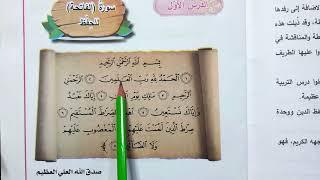 الدرس الأول
سورة (الفاتحة)
للحفظ
بِسْمِ اللَّهِ الرَّحْمَنِ الرَّحِيمِ
الْحَمْدُ لِلَّهِ رَبِّ الْعَالَمِينَ الرَّحْمَنِ
الرَّحِيمِ مَالِكِ يَوْمِ الدِّينِ إِيَّاكَ نَعْبُدُ
وَإِيَّاكَ نَسْتَعِينُ اهْدِنَا الصِّرَاطَ الْمُسْتَقِيمَ
صِرَاطَ الَّذِينَ أَنْعَمْتَ عَلَيْهِمْ غَيْرِ الْمَغْضُوبِ عَلَيْهِمْ
وَلَا الضَّالِّينَ
صدق الله العلي العظيم
لاضافة إلى رفدها
وقد ذيلت هذه
طة والمناقشة في
وا عليها الظريف
درس التربية
الدين ووحدة
جهه الكريم، فهو